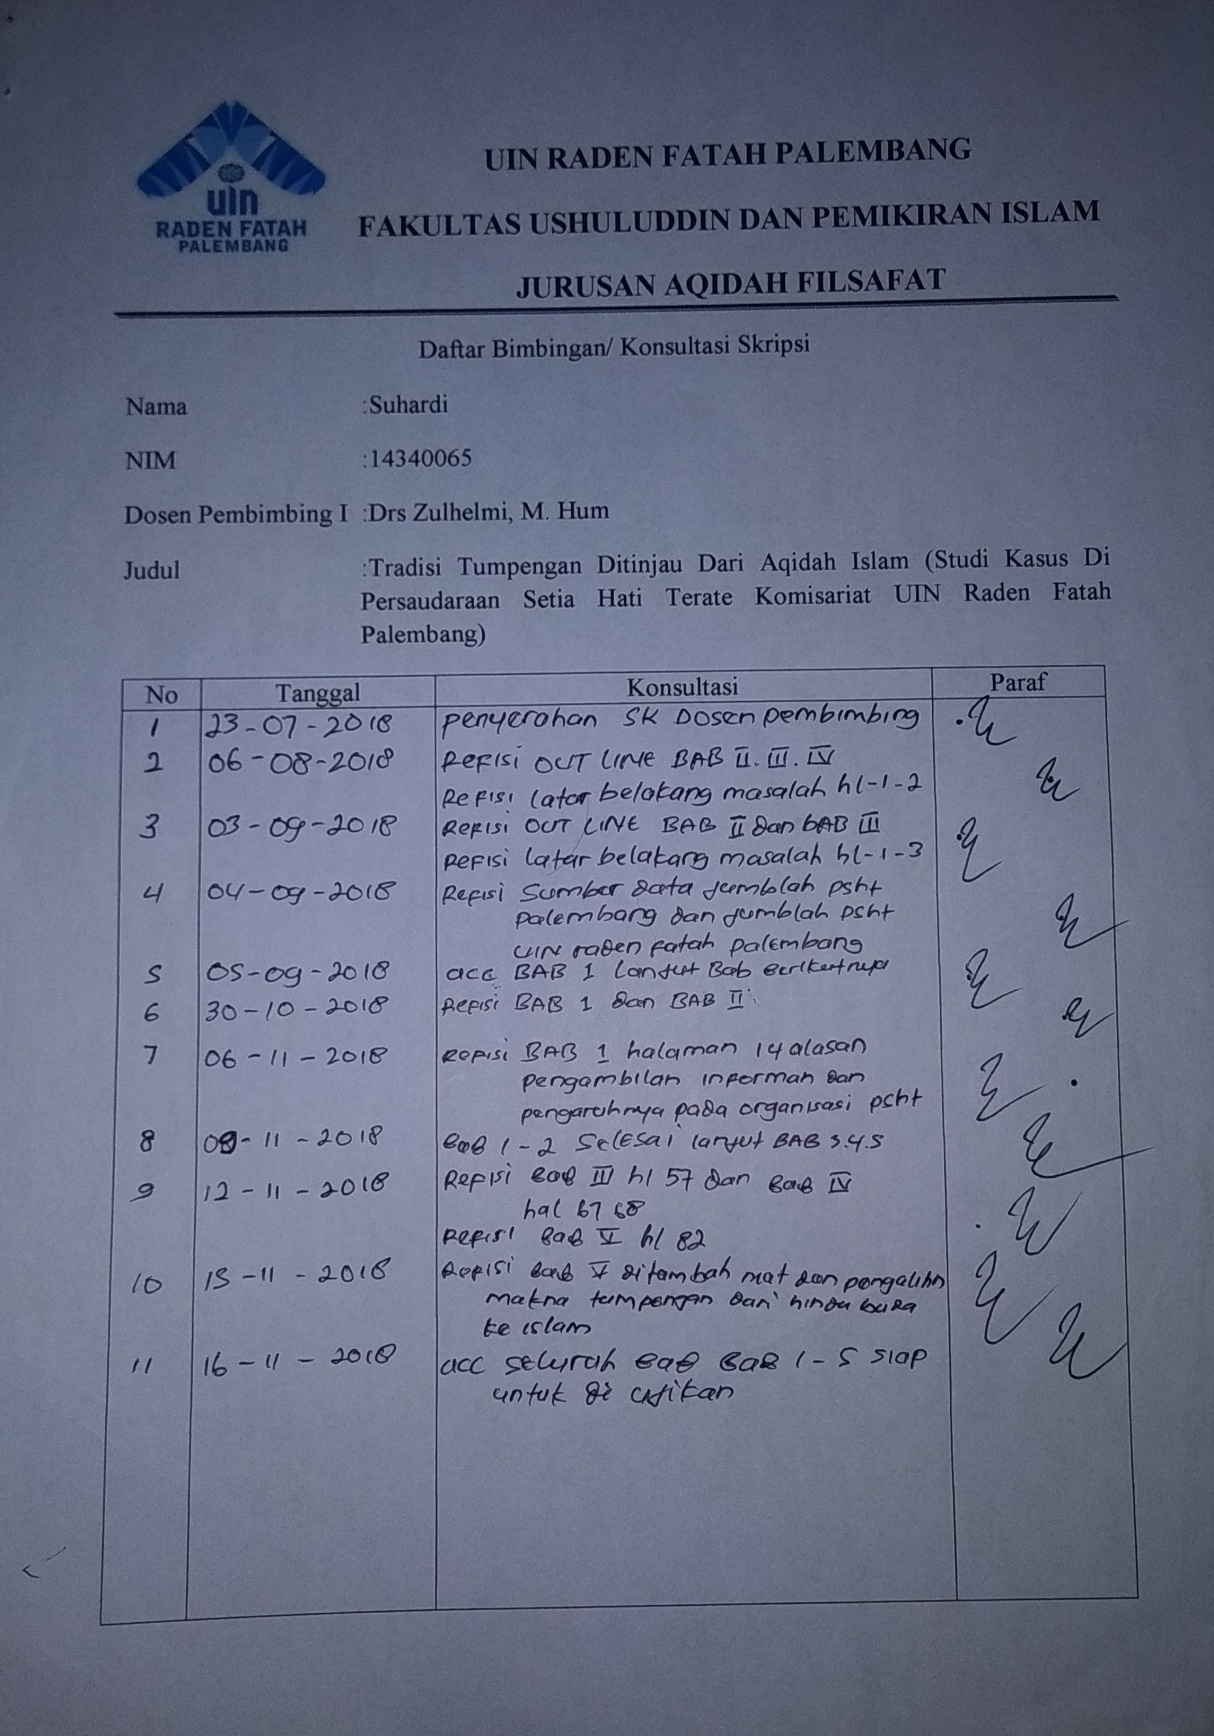 uin
RADEN FATAH
PALEMBANG
UIN RADEN FATAH PALEMBANG
FAKULTAS USHULUDDIN DAN PEMIKIRAN ISLAM
JURUSAN AQIDAH FILSAFAT
Daftar Bimbingan/ Konsultasi Skripsi
Nama :Suhardi
NIM :14340065
Dosen Pembimbing I :Drs Zulhelmi, M. Hum
Judul :Tradisi Tumpengan Ditinjau Dari Aqidah Islam (Studi Kasus Di
Persaudaraan Setia Hati Terate Komisariat UIN Raden Fatah
Palembang)
No Tanggal Konsultasi Paraf
1 23-07-2018 penyerahan SK Dosen pembimbing
2 06-08-2018 Refisi OUT LINE BAB II. III. IV
Refisi latar belakang masalah hl-1-2
3 03-09-2018 Refisi OUT LINE BAB II dan BAB III
Refisi latar belakang masalah hl-1-3
4 04-09-2018 Refisi Sumber data jumblah psht
palembang dan jumblah psht
UIN raden fatah palembang
5 05-09-2018 acc BAB 1 lanjut Bab
6 30-10-2018 Refisi BAB 1 dan BAB II
7 06-11-2018 Refisi BAB 1 halaman 14 alasan
pengambilan informan dan
pengaruhnya pada organisasi psht
8 -11-2018 BAB 1-2 Selesai lanjut BAB 3.4.5
9 12-11-2018 Refisi BAB III hl 57 dan BAB IV
hal 67 68
Refisi BAB V hl 82
10 -11-2018 Refisi BAB V ditambah dan
makna tumpengan dari hindu
ke islam
11 16-11-2018 acc seluruh BAB BAB 1-5 siap
untuk di ujikan